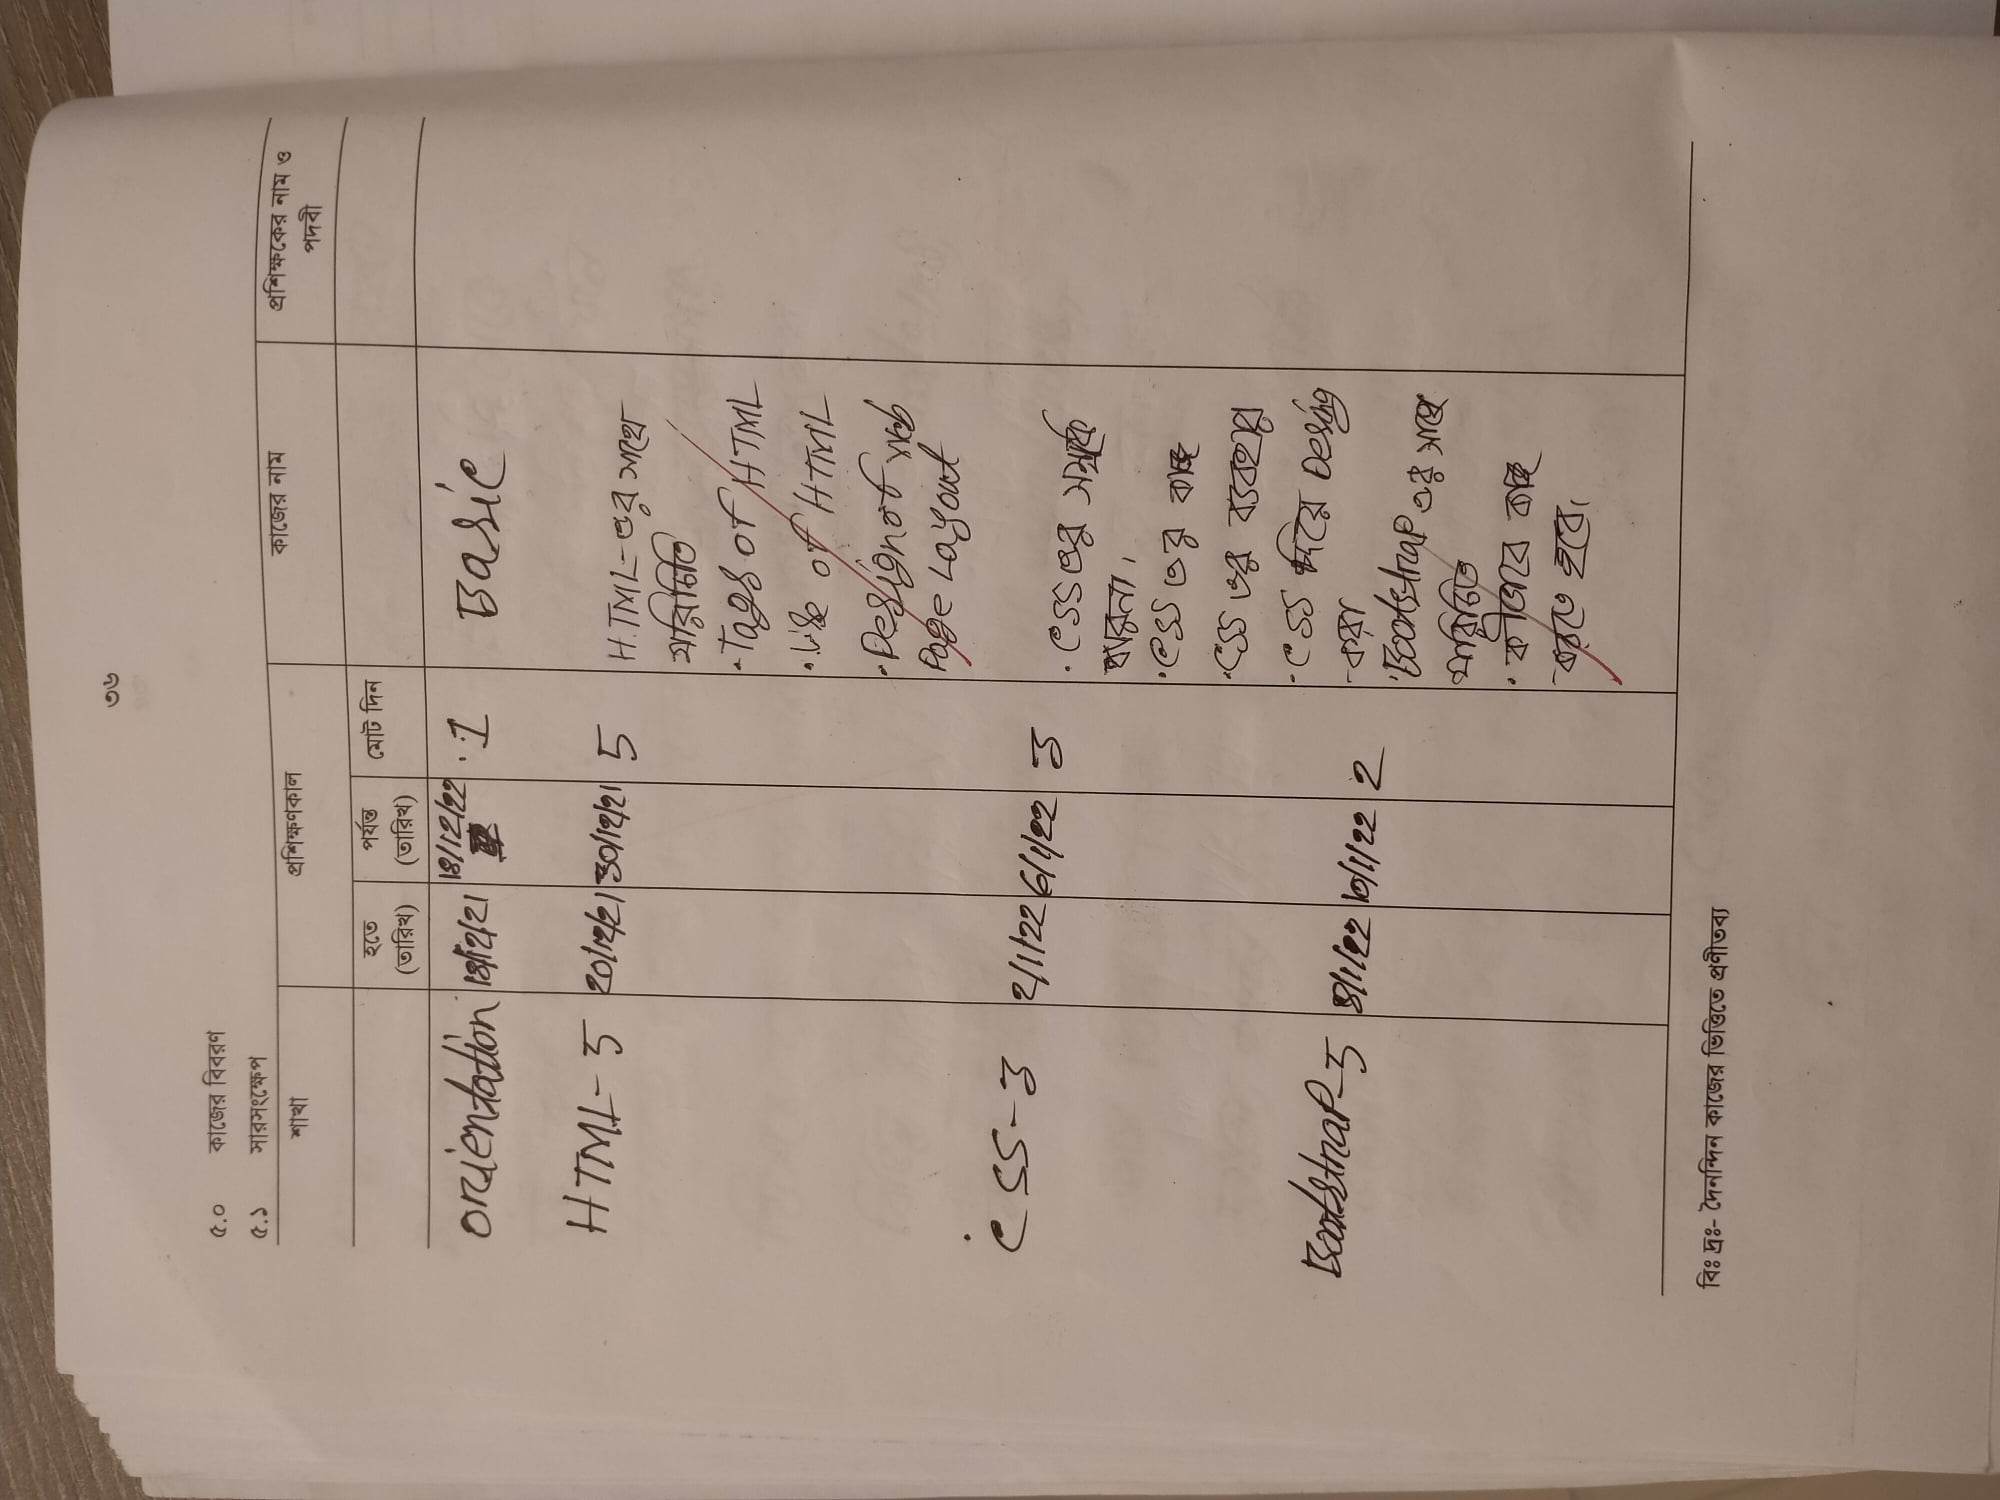 ৩৬
৫.০ কাজের বিবরণ
৫.১ সারসংক্ষেপ
শাখা প্রশিক্ষণকাল কাজের নাম প্রশিক্ষকের নাম ও
পদবী
হতে
(তারিখ) পর্যন্ত
(তারিখ) মোট দিন
Orientation 1 Basic
HTML-5 20/12/21 30/12/21 5 HTML-এর সাথে
পরিচিতি
• Tags of HTML
• Use of HTML
• Design of web
Page Layout
CSS-3 2/1/22 6/1/22 3 • CSS এর সম্পর্কে
ধারনা।
• CSS এর কাজ
• CSS এর ব্যবহার
• CSS দিয়ে Design
করা
Bootstrap-5 10/1/22 2 Bootstrap এর সাথে
পরিচিতি
• কীভাবে কাজ
করতে হবে।
বিঃ দ্রঃ- দৈনন্দিন কাজের ভিত্তিতে প্রণীতব্য